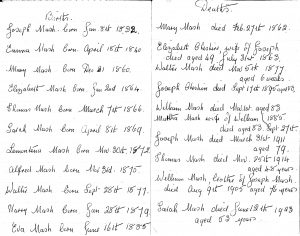 Births.
Joseph Mash born Jan 3rd 1832.
Emma Mash born April 18th 1840
Mary Mash born Dec 21 1860.
Elizabeth Mash born Jan 2nd 1864
Thomas Mash born March 7th 1866.
Sarah Mash born April 8th 1869.
Mash born Nov 30th 1872
Alfred Mash born Nov 3rd 1875.
Walter Mash born Sept 28th 1877.
Harry Mash born Jan 28th 1879
Eva Mash born June 16th
Deaths.
Mary Mash died Feb. 27th 1862.
Elizabeth wife of Joseph
died aged 49 July 31st 1863.
Walter Mash died Nov 5th 1877
aged 6 weeks.
Joseph died Sept 17th aged
William Mash died aged 83
Mash wife of William 1885
died aged 83 Sept 27th.
Joseph Mash died March 31st 1911
aged 79.
Thomas Mash died Nov. 25th 1914
aged 48 years
William Mash brother of Joseph Mash
died Aug 9th 1905 aged 76 years
Sarah Mash died June 18th 1923
aged 53 years.